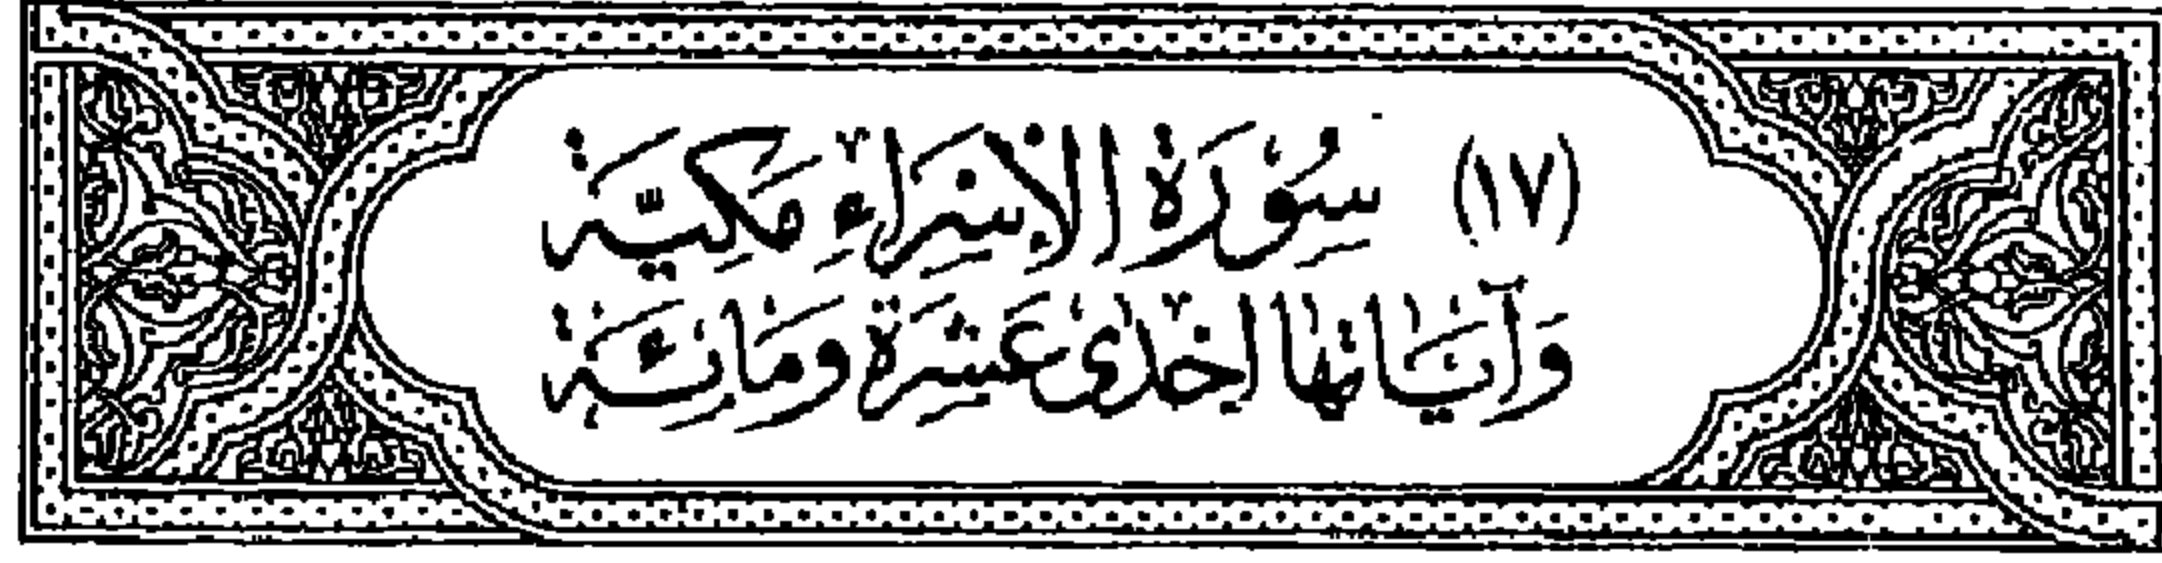 (١٧) سُوْرَةُ الْإِسْرَاءِ مَكِيَّةٌ
وَآيَاتُهَا إِحْدَىٰ عَشَرَةَ وَمَائَةٌ